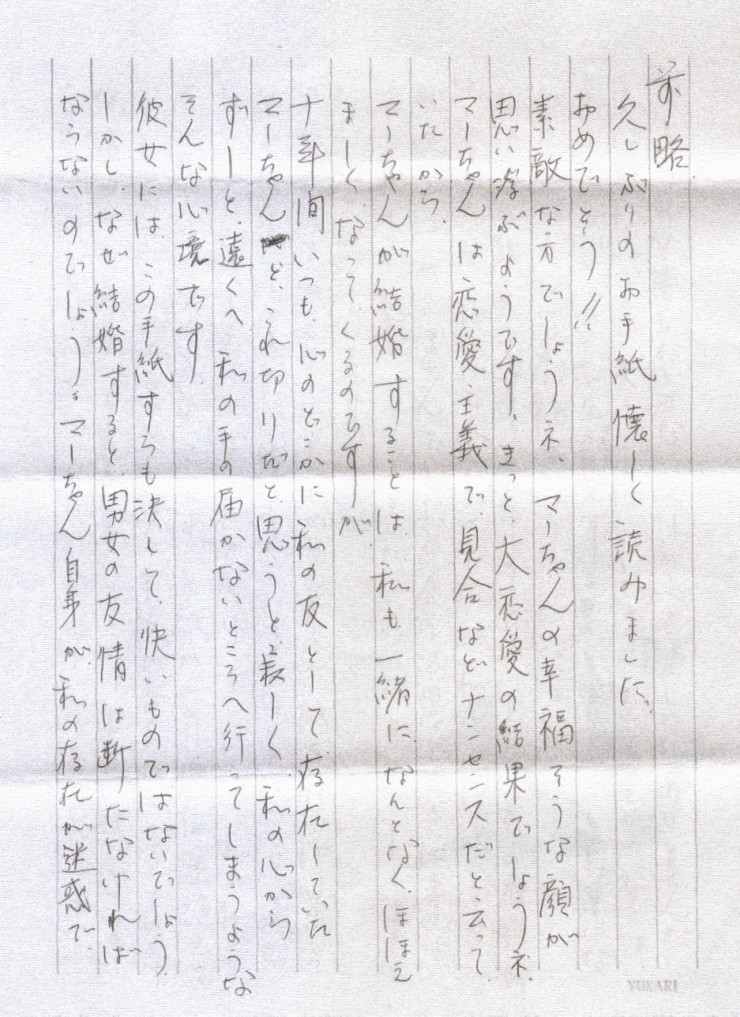 前略
久しぶりのお手紙懐しく読みました。
おめでとう!!
素敵な方でしょうネ、マーちゃんの幸福そうな顔が
思い浮ぶようです。きっと、大恋愛の結果でしょうネ、
マーちゃんは恋愛主義で、見合などナンセンスだと云って
いたから、
マーちゃんが結婚することは、私も一緒に、なんとなく、ほほえ
ましく、なって、くるのですが、
十年間、いつも、心のどこかに私の友として、存在していた
マーちゃんと、これ切りだと、思うと、寂しく、私の心から
ずーと、遠くへ、私の手の届かないところへ行ってしまうような
そんな心境です。
彼女には、この手紙すらも決して、快いものではないでしょう、
しかし、なぜ結婚すると、男女の友情は断たなければ
ならないのでしょう。マーちゃん自身が、私の存在が迷惑で、
YUKARI